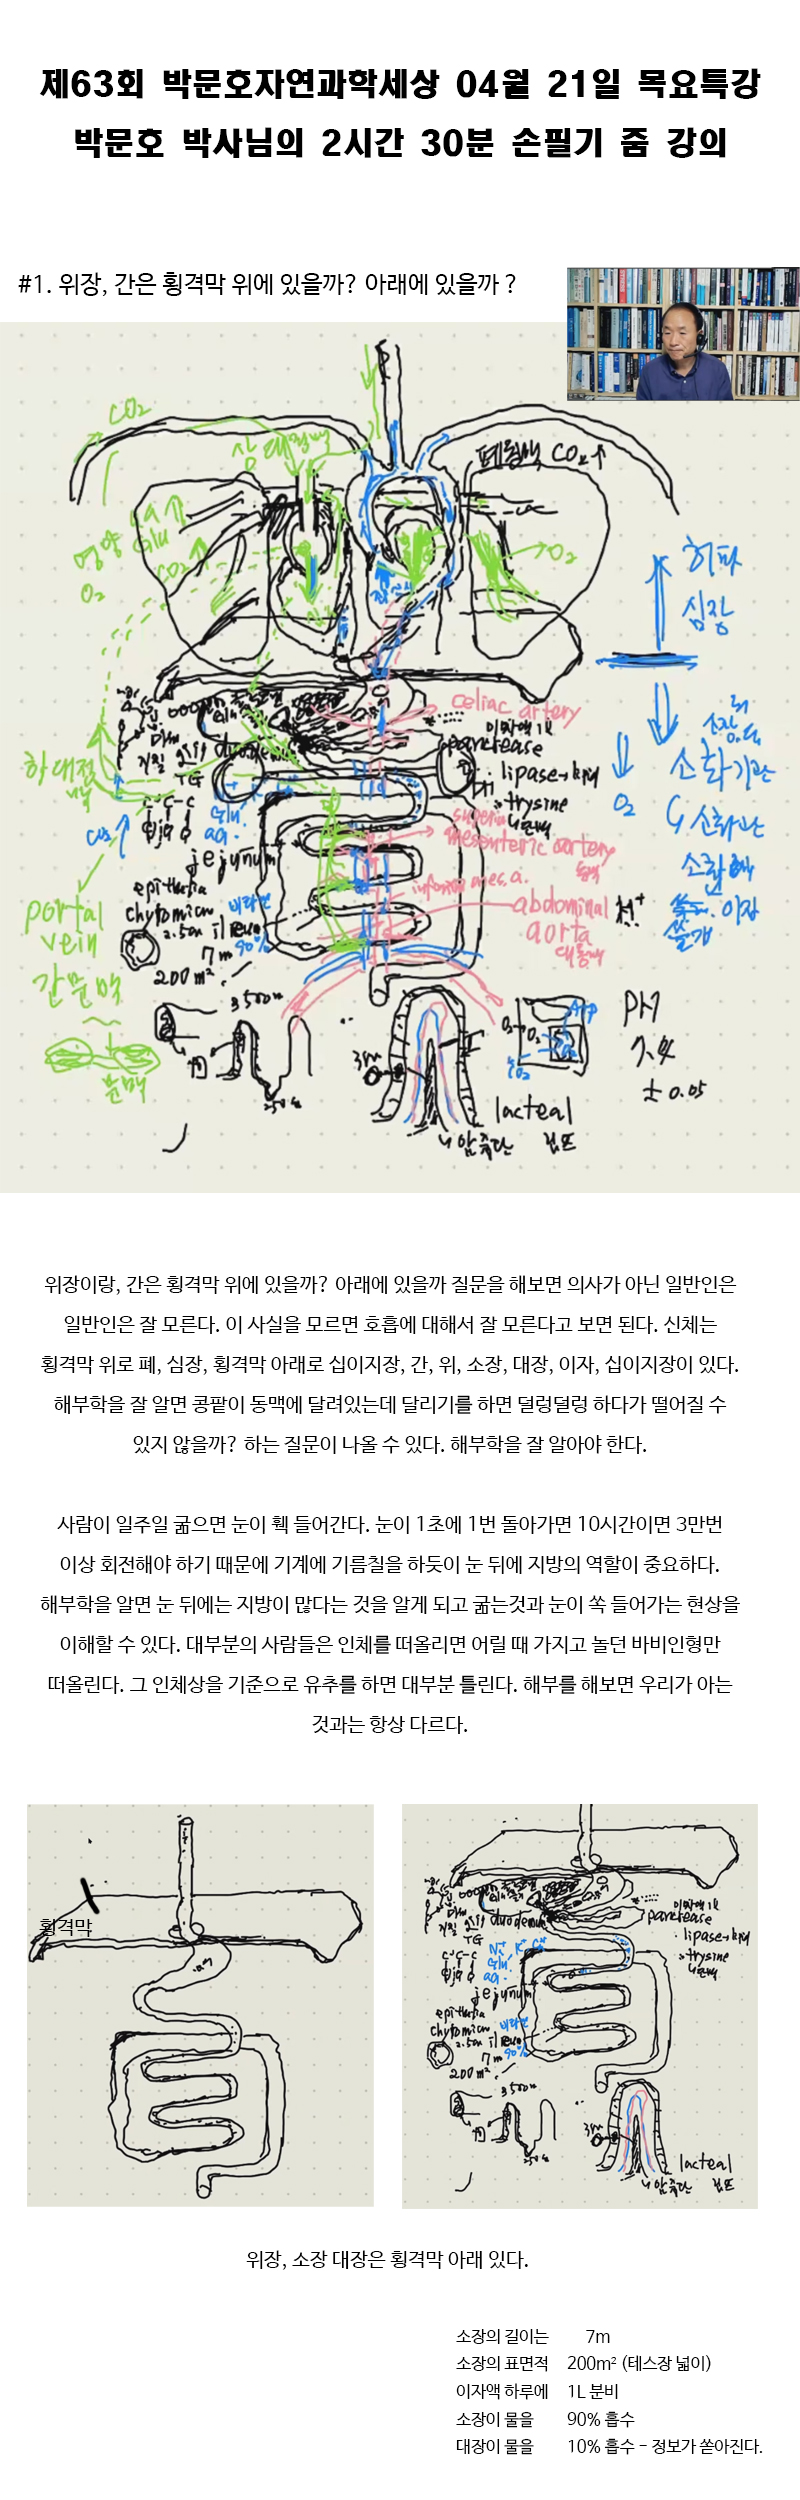 제63회 박문호자연과학세상 04월 21일 목요특강
박문호 박사님의 2시간 30분 손필기 줌 강의
#1. 위장, 간은 횡격막 위에 있을까? 아래에 있을까 ?
CO₂
상대정맥
폐정맥 CO₂↑
영양
O₂
CO₂
O₂
허파
심장
celiac artery
이자액 1L
pancrease
lipase
trysine
소화기관
소화관
O₂
하대정맥
duodenum
TG
c-c-c
Glu.
aa.
jejunum
superior
mesenteric artery
epithelia
chylomicron
비타민
inferior mes.a.
portal
vein
abdominal
aorta
대동맥
ileum
90%
7m
200m²
간문맥
문맥
O₂
ATP
CO₂
pH
7.4
± 0.05
lacteal
암죽관
림프
위장이랑, 간은 횡격막 위에 있을까? 아래에 있을까 질문을 해보면 의사가 아닌 일반인은
일반인은 잘 모른다. 이 사실을 모르면 호흡에 대해서 잘 모른다고 보면 된다. 신체는
횡격막 위로 폐, 심장, 횡격막 아래로 십이지장, 간, 위, 소장, 대장, 이자, 십이지장이 있다.
해부학을 잘 알면 콩팥이 동맥에 달려있는데 달리기를 하면 덜렁덜렁 하다가 떨어질 수
있지 않을까? 하는 질문이 나올 수 있다. 해부학을 잘 알아야 한다.
사람이 일주일 굶으면 눈이 훽 들어간다. 눈이 1초에 1번 돌아가면 10시간이면 3만번
이상 회전해야 하기 때문에 기계에 기름칠을 하듯이 눈 뒤에 지방의 역할이 중요하다.
해부학을 알면 눈 뒤에는 지방이 많다는 것을 알게 되고 굶는것과 눈이 쏙 들어가는 현상을
이해할 수 있다. 대부분의 사람들은 인체를 떠올리면 어릴 때 가지고 놀던 바비인형만
떠올린다. 그 인체상을 기준으로 유추를 하면 대부분 틀린다. 해부를 해보면 우리가 아는
것과는 항상 다르다.
횡격막
이자액 1L
pancrease
lipase
trysine
duodenum
TG
c-c-c
Glu.
aa.
jejunum
epithelia
chylomicron
비타민
ileum
90%
7m
200m²
lacteal
암죽관
림프
위장, 소장 대장은 횡격막 아래 있다.
소장의 길이는 7m
소장의 표면적 200m² (테스장 넓이)
이자액 하루에 1L 분비
소장이 물을 90% 흡수
대장이 물을 10% 흡수 - 정보가 쏟아진다.